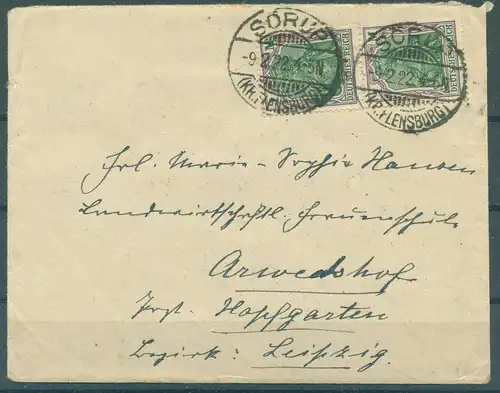 SÖRUP
-9.2.22. 4-5N.
(KR. FLENSBURG)
DEUTSCHES REICH
SÖRUP
-9.2.22. 4-5N.
(KR. FLENSBURG)
DEUTSCHES REICH
Frl. Marie-Sophie Hansen
Landwirtschaftl. Frauenschule
Arwedshof
Hopfgarten
Bezirk: Leipzig.